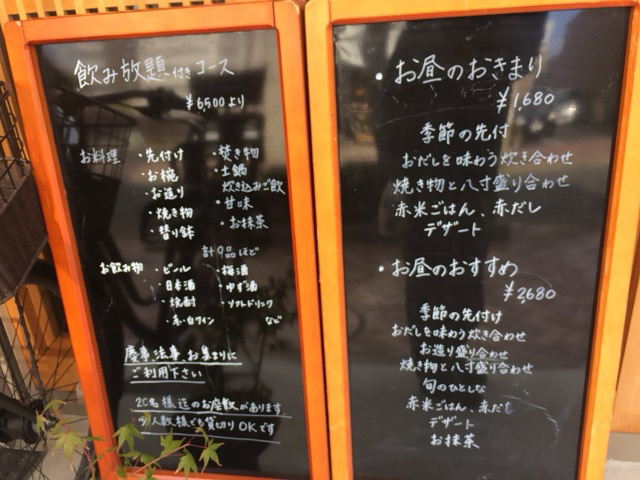 飲み放題付きコース
¥6,500より
お料理
・先付け
・お椀
・お造り
・焼き物
・替り鉢
・焚き物
・土鍋
炊き込みご飯
・甘味
・お抹茶
計9品ほど
お飲み物
・ビール
・日本酒
・焼酎
・赤・白ワイン
・梅酒
・ゆず酒
・ソフトドリンク
など
慶事、法事、お集まりに
ご利用下さい
20名様迄のお座敷があります
少人数様でも貸切りOKです
・お昼のおきまり
¥1,680
季節の先付
おだしを味わう炊き合わせ
焼き物と八寸盛り合わせ
赤米ごはん、赤だし
デザート
・お昼のおすすめ
¥2,680
季節の先付け
おだしを味わう炊き合わせ
お造り盛り合わせ
焼き物と八寸盛り合わせ
旬のひとしな
赤米ごはん、赤だし
デザート
お抹茶